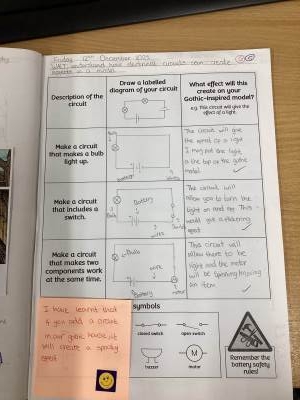 Friday 12th December 2025
WALT: understand how electrical circuits can create
effects in a model.
Description of the
circuit
Draw a labelled
diagram of your circuit
What effect will this
create on your
Gothic-inspired model?
e.g. This circuit will give the
effect of a light.
Make a circuit
that makes a bulb
light up.
Bulb
battery
wire
The circuit will give
the effect of a light
I may put the light
at the top of the gothic
model.
Make a circuit
that includes a
switch.
Battery
Bulb
wire
The circuit will
allow you to turn the
light on and off. This
would give a flickering
effect.
Make a circuit
that makes two
components work
at the same time.
Bulb
wire
Battery
motor
This circuit will
allow there to be
light and the motor
will be
an item.
I have learnt that
if you add a circuit
in our gothic house, it
will create a spooky
effect
symbols
closed switch
open switch
M
buzzer
motor
Remember the
battery safety
rules!